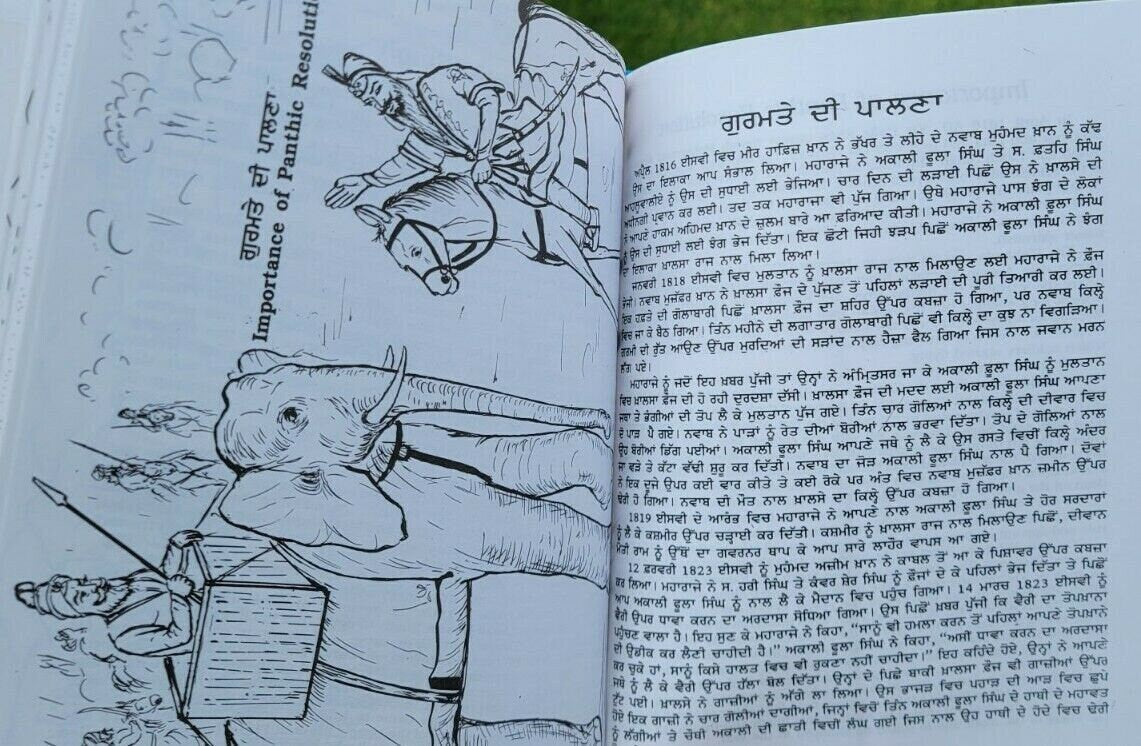 ਗੁਰਮਤੇ ਦੀ ਪਾਲਣਾ
Importance of Panthic Resoluti
ਗੁਰਮਤੇ ਦੀ ਪਾਲਣਾ
ਅਪ੍ਰੈਲ 1816 ਈਸਵੀ ਵਿਚ ਮੀਰ ਹਾਫਿਜ਼ ਖ਼ਾਨ ਨੇ ਭੱਖਰ ਤੇ ਲੀਹੇ ਦੇ ਨਵਾਬ ਮੁਹੰਮਦ ਖ਼ਾਨ ਨੂੰ ਕੱਢ
ਉਸ ਦਾ ਇਲਾਕਾ ਆਪ ਸੰਭਾਲ ਲਿਆ। ਮਹਾਰਾਜੇ ਨੇ ਅਕਾਲੀ ਫੂਲਾ ਸਿੰਘ ਤੇ ਸ. ਫ਼ਤਹਿ ਸਿੰਘ
ਆਹਲੂਵਾਲੀਏ ਨੂੰ ਉਸ ਦੀ ਸੁਧਾਈ ਲਈ ਭੇਜਿਆ। ਚਾਰ ਦਿਨ ਦੀ ਲੜਾਈ ਪਿਛੋਂ ਉਸ ਨੇ ਖ਼ਾਲਸੇ ਦੀ
ਅਧੀਨਗੀ ਪ੍ਰਵਾਨ ਕਰ ਲਈ। ਤਦ ਤਕ ਮਹਾਰਾਜਾ ਵੀ ਪੁੱਜ ਗਿਆ। ਉਥੇ ਮਹਾਰਾਜੇ ਪਾਸ ਝੰਗ ਦੇ ਲੋਕਾਂ
ਨੇ ਆਪਣੇ ਹਾਕਮ ਅਹਿਮਦ ਖ਼ਾਨ ਦੇ ਜ਼ੁਲਮ ਬਾਰੇ ਆ ਫ਼ਰਿਆਦ ਕੀਤੀ। ਮਹਾਰਾਜੇ ਨੇ ਅਕਾਲੀ ਫੂਲਾ ਸਿੰਘ
ਨੂੰ ਉਸ ਦੀ ਸੁਧਾਈ ਲਈ ਝੰਗ ਭੇਜ ਦਿੱਤਾ। ਇਕ ਛੋਟੀ ਜਿਹੀ ਝੜਪ ਪਿਛੋਂ ਅਕਾਲੀ ਫੂਲਾ ਸਿੰਘ ਨੇ ਝੰਗ
ਦਾ ਇਲਾਕਾ ਖ਼ਾਲਸਾ ਰਾਜ ਨਾਲ ਮਿਲਾ ਲਿਆ।
ਜਨਵਰੀ 1818 ਈਸਵੀ ਵਿਚ ਮੁਲਤਾਨ ਨੂੰ ਖ਼ਾਲਸਾ ਰਾਜ ਨਾਲ ਮਿਲਾਉਣ ਲਈ ਮਹਾਰਾਜੇ ਨੇ ਫ਼ੌਜ
ਭੇਜੀ। ਨਵਾਬ ਮੁਜ਼ੱਫਰ ਖ਼ਾਨ ਨੇ ਖ਼ਾਲਸਾ ਫ਼ੌਜ ਦੇ ਪੁੱਜਣ ਤੋਂ ਪਹਿਲਾਂ ਲੜਾਈ ਦੀ ਪੂਰੀ ਤਿਆਰੀ ਕਰ ਲਈ।
ਇਕ ਹਫ਼ਤੇ ਦੀ ਗੋਲਾਬਾਰੀ ਪਿਛੋਂ ਖ਼ਾਲਸਾ ਫ਼ੌਜ ਦਾ ਸ਼ਹਿਰ ਉੱਪਰ ਕਬਜ਼ਾ ਹੋ ਗਿਆ, ਪਰ ਨਵਾਬ ਕਿਲ੍ਹੇ
ਵਿਚ ਜਾ ਕੇ ਬੈਠ ਗਿਆ। ਤਿੰਨ ਮਹੀਨੇ ਦੀ ਲਗਾਤਾਰ ਗੋਲਾਬਾਰੀ ਪਿਛੋਂ ਵੀ ਕਿਲ੍ਹੇ ਦਾ ਕੁਝ ਨਾ ਵਿਗੜਿਆ।
ਗਰਮੀ ਦੀ ਰੁੱਤ ਆਉਣ ਉੱਪਰ ਮੁਰਦਿਆਂ ਦੀ ਸੜਾਂਦ ਨਾਲ ਹੈਜ਼ਾ ਫੈਲ ਗਿਆ ਜਿਸ ਨਾਲ ਜਵਾਨ ਮਰਨ
ਲੱਗ ਪਏ।
ਮਹਾਰਾਜੇ ਨੂੰ ਜਦੋਂ ਇਹ ਖ਼ਬਰ ਪੁੱਜੀ ਤਾਂ ਉਨ੍ਹਾਂ ਨੇ ਅੰਮ੍ਰਿਤਸਰ ਜਾ ਕੇ ਅਕਾਲੀ ਫੂਲਾ ਸਿੰਘ ਨੂੰ ਮੁਲਤਾਨ
ਵਿਚ ਖ਼ਾਲਸਾ ਫ਼ੌਜ ਦੀ ਹੋ ਰਹੀ ਦੁਰਦਸ਼ਾ ਦੱਸੀ। ਖ਼ਾਲਸਾ ਫ਼ੌਜ ਦੀ ਮਦਦ ਲਈ ਅਕਾਲੀ ਫੂਲਾ ਸਿੰਘ ਆਪਣਾ
ਜਥਾ ਤੇ ਭੰਗੀਆਂ ਦੀ ਤੋਪ ਲੈ ਕੇ ਮੁਲਤਾਨ ਪੁੱਜ ਗਏ। ਤਿੰਨ ਚਾਰ ਗੋਲਿਆਂ ਨਾਲ ਕਿਲ੍ਹੇ ਦੀ ਦੀਵਾਰ ਵਿਚ
ਦੋ ਪਾੜ ਪੈ ਗਏ। ਨਵਾਬ ਨੇ ਪਾੜਾਂ ਨੂੰ ਰੇਤ ਦੀਆਂ ਬੋਰੀਆਂ ਨਾਲ ਭਰਵਾ ਦਿੱਤਾ। ਤੋਪ ਦੇ ਗੋਲਿਆਂ ਨਾਲ
ਉਹ ਬੋਰੀਆਂ ਡਿੱਗ ਪਈਆਂ। ਅਕਾਲੀ ਫੂਲਾ ਸਿੰਘ ਆਪਣੇ ਜਥੇ ਨੂੰ ਲੈ ਕੇ ਉਸ ਰਸਤੇ ਵਿਚੀਂ ਕਿਲ੍ਹੇ ਅੰਦਰ
ਜਾ ਵੜੇ ਤੇ ਕੱਟਾ ਵੱਢੀ ਸ਼ੁਰੂ ਕਰ ਦਿੱਤੀ। ਨਵਾਬ ਦਾ ਜੋੜ ਅਕਾਲੀ ਫੂਲਾ ਸਿੰਘ ਨਾਲ ਪੈ ਗਿਆ। ਦੋਵਾਂ
ਨੇ ਇਕ ਦੂਜੇ ਉਪਰ ਕਈ ਵਾਰ ਕੀਤੇ ਤੇ ਕਈ ਰੋਕੇ ਪਰ ਅੰਤ ਵਿਚ ਨਵਾਬ ਮੁਜ਼ੱਫਰ ਖ਼ਾਨ ਜ਼ਮੀਨ ਉੱਪਰ
ਢੇਰੀ ਹੋ ਗਿਆ। ਨਵਾਬ ਦੀ ਮੌਤ ਨਾਲ ਖ਼ਾਲਸੇ ਦਾ ਕਿਲ੍ਹੇ ਉੱਪਰ ਕਬਜ਼ਾ ਹੋ ਗਿਆ।
1819 ਈਸਵੀ ਦੇ ਆਰੰਭ ਵਿਚ ਮਹਾਰਾਜੇ ਨੇ ਆਪਣੇ ਨਾਲ ਅਕਾਲੀ ਫੂਲਾ ਸਿੰਘ ਤੇ ਹੋਰ ਸਰਦਾਰਾਂ
ਨੂੰ ਲੈ ਕੇ ਕਸ਼ਮੀਰ ਉੱਪਰ ਚੜ੍ਹਾਈ ਕਰ ਦਿੱਤੀ। ਕਸ਼ਮੀਰ ਨੂੰ ਖ਼ਾਲਸਾ ਰਾਜ ਨਾਲ ਮਿਲਾਉਣ ਪਿਛੋਂ, ਦੀਵਾਨ
ਮੋਤੀ ਰਾਮ ਨੂੰ ਉੱਥੋਂ ਦਾ ਗਵਰਨਰ ਥਾਪ ਕੇ ਆਪ ਸਾਰੇ ਲਾਹੌਰ ਵਾਪਸ ਆ ਗਏ।
12 ਫ਼ਰਵਰੀ 1823 ਈਸਵੀ ਨੂੰ ਮੁਹੰਮਦ ਅਜ਼ੀਮ ਖ਼ਾਨ ਨੇ ਕਾਬਲ ਤੋਂ ਆ ਕੇ ਪਿਸ਼ਾਵਰ ਉੱਪਰ ਕਬਜ਼ਾ
ਕਰ ਲਿਆ। ਮਹਾਰਾਜੇ ਨੇ ਸ. ਹਰੀ ਸਿੰਘ ਤੇ ਕੰਵਰ ਸ਼ੇਰ ਸਿੰਘ ਨੂੰ ਫ਼ੌਜਾਂ ਦੇ ਕੇ ਪਹਿਲਾਂ ਭੇਜ ਦਿੱਤਾ ਤੇ ਪਿਛੋਂ
ਆਪ ਅਕਾਲੀ ਫੂਲਾ ਸਿੰਘ ਨੂੰ ਨਾਲ ਲੈ ਕੇ ਮੈਦਾਨ ਵਿਚ ਪਹੁੰਚ ਗਿਆ। 14 ਮਾਰਚ 1823 ਈਸਵੀ ਨੂੰ
ਵੈਰੀ ਉਪਰ ਧਾਵਾ ਕਰਨ ਦਾ ਅਰਦਾਸਾ ਸੋਧਿਆ ਗਿਆ। ਉਸ ਪਿਛੋਂ ਖ਼ਬਰ ਪੁੱਜੀ ਕਿ ਵੈਰੀ ਦਾ ਤੋਪਖ਼ਾਨਾ
ਪਹੁੰਚਣ ਵਾਲਾ ਹੈ। ਇਹ ਸੁਣ ਕੇ ਮਹਾਰਾਜੇ ਨੇ ਕਿਹਾ, “ਸਾਨੂੰ ਵੀ ਹਮਲਾ ਕਰਨ ਤੋਂ ਪਹਿਲਾਂ ਆਪਣੇ ਤੋਪਖ਼ਾਨੇ
ਦੀ ਉਡੀਕ ਕਰ ਲੈਣੀ ਚਾਹੀਦੀ ਹੈ।” ਅਕਾਲੀ ਫੂਲਾ ਸਿੰਘ ਨੇ ਕਿਹਾ, “ਅਸੀਂ ਧਾਵਾ ਕਰਨ ਦਾ ਅਰਦਾਸਾ
ਕਰ ਚੁਕੇ ਹਾਂ, ਸਾਨੂੰ ਕਿਸੇ ਹਾਲਤ ਵਿਚ ਵੀ ਰੁਕਣਾ ਨਹੀਂ ਚਾਹੀਦਾ।” ਇਹ ਕਹਿੰਦੇ ਹੋਏ, ਉਨ੍ਹਾਂ ਨੇ ਆਪਣੇ
ਜਥੇ ਨੂੰ ਲੈ ਕੇ ਵੈਰੀ ਉੱਪਰ ਹੱਲਾ ਬੋਲ ਦਿੱਤਾ। ਉਨ੍ਹਾਂ ਦੇ ਪਿਛੇ ਬਾਕੀ ਖ਼ਾਲਸਾ ਫ਼ੌਜ ਵੀ ਗਾਜ਼ੀਆਂ ਉੱਪਰ
ਟੁੱਟ ਪਈ। ਖ਼ਾਲਸੇ ਨੇ ਗਾਜ਼ੀਆਂ ਨੂੰ ਅੱਗੇ ਲਾ ਲਿਆ। ਉਸ ਭਾਜੜ ਵਿਚ ਪਹਾੜ ਦੀ ਆੜ ਵਿਚ ਛੁਪੇ
ਹੋਏ ਇਕ ਗਾਜ਼ੀ ਨੇ ਚਾਰ ਗੋਲੀਆਂ ਦਾਗੀਆਂ, ਜਿਨ੍ਹਾਂ ਵਿਚੋਂ ਤਿੰਨ ਅਕਾਲੀ ਫੂਲਾ ਸਿੰਘ ਦੇ ਹਾਥੀ ਦੇ ਮਹਾਵਤ
ਨੂੰ ਲੱਗੀਆਂ ਤੇ ਚੌਥੀ ਅਕਾਲੀ ਦੀ ਛਾਤੀ ਵਿਚੀਂ ਲੰਘ ਗਈ ਜਿਸ ਨਾਲ ਉਹ ਹਾਥੀ ਦੇ ਹੌਦੇ ਵਿਚ ਢੇਰੀ